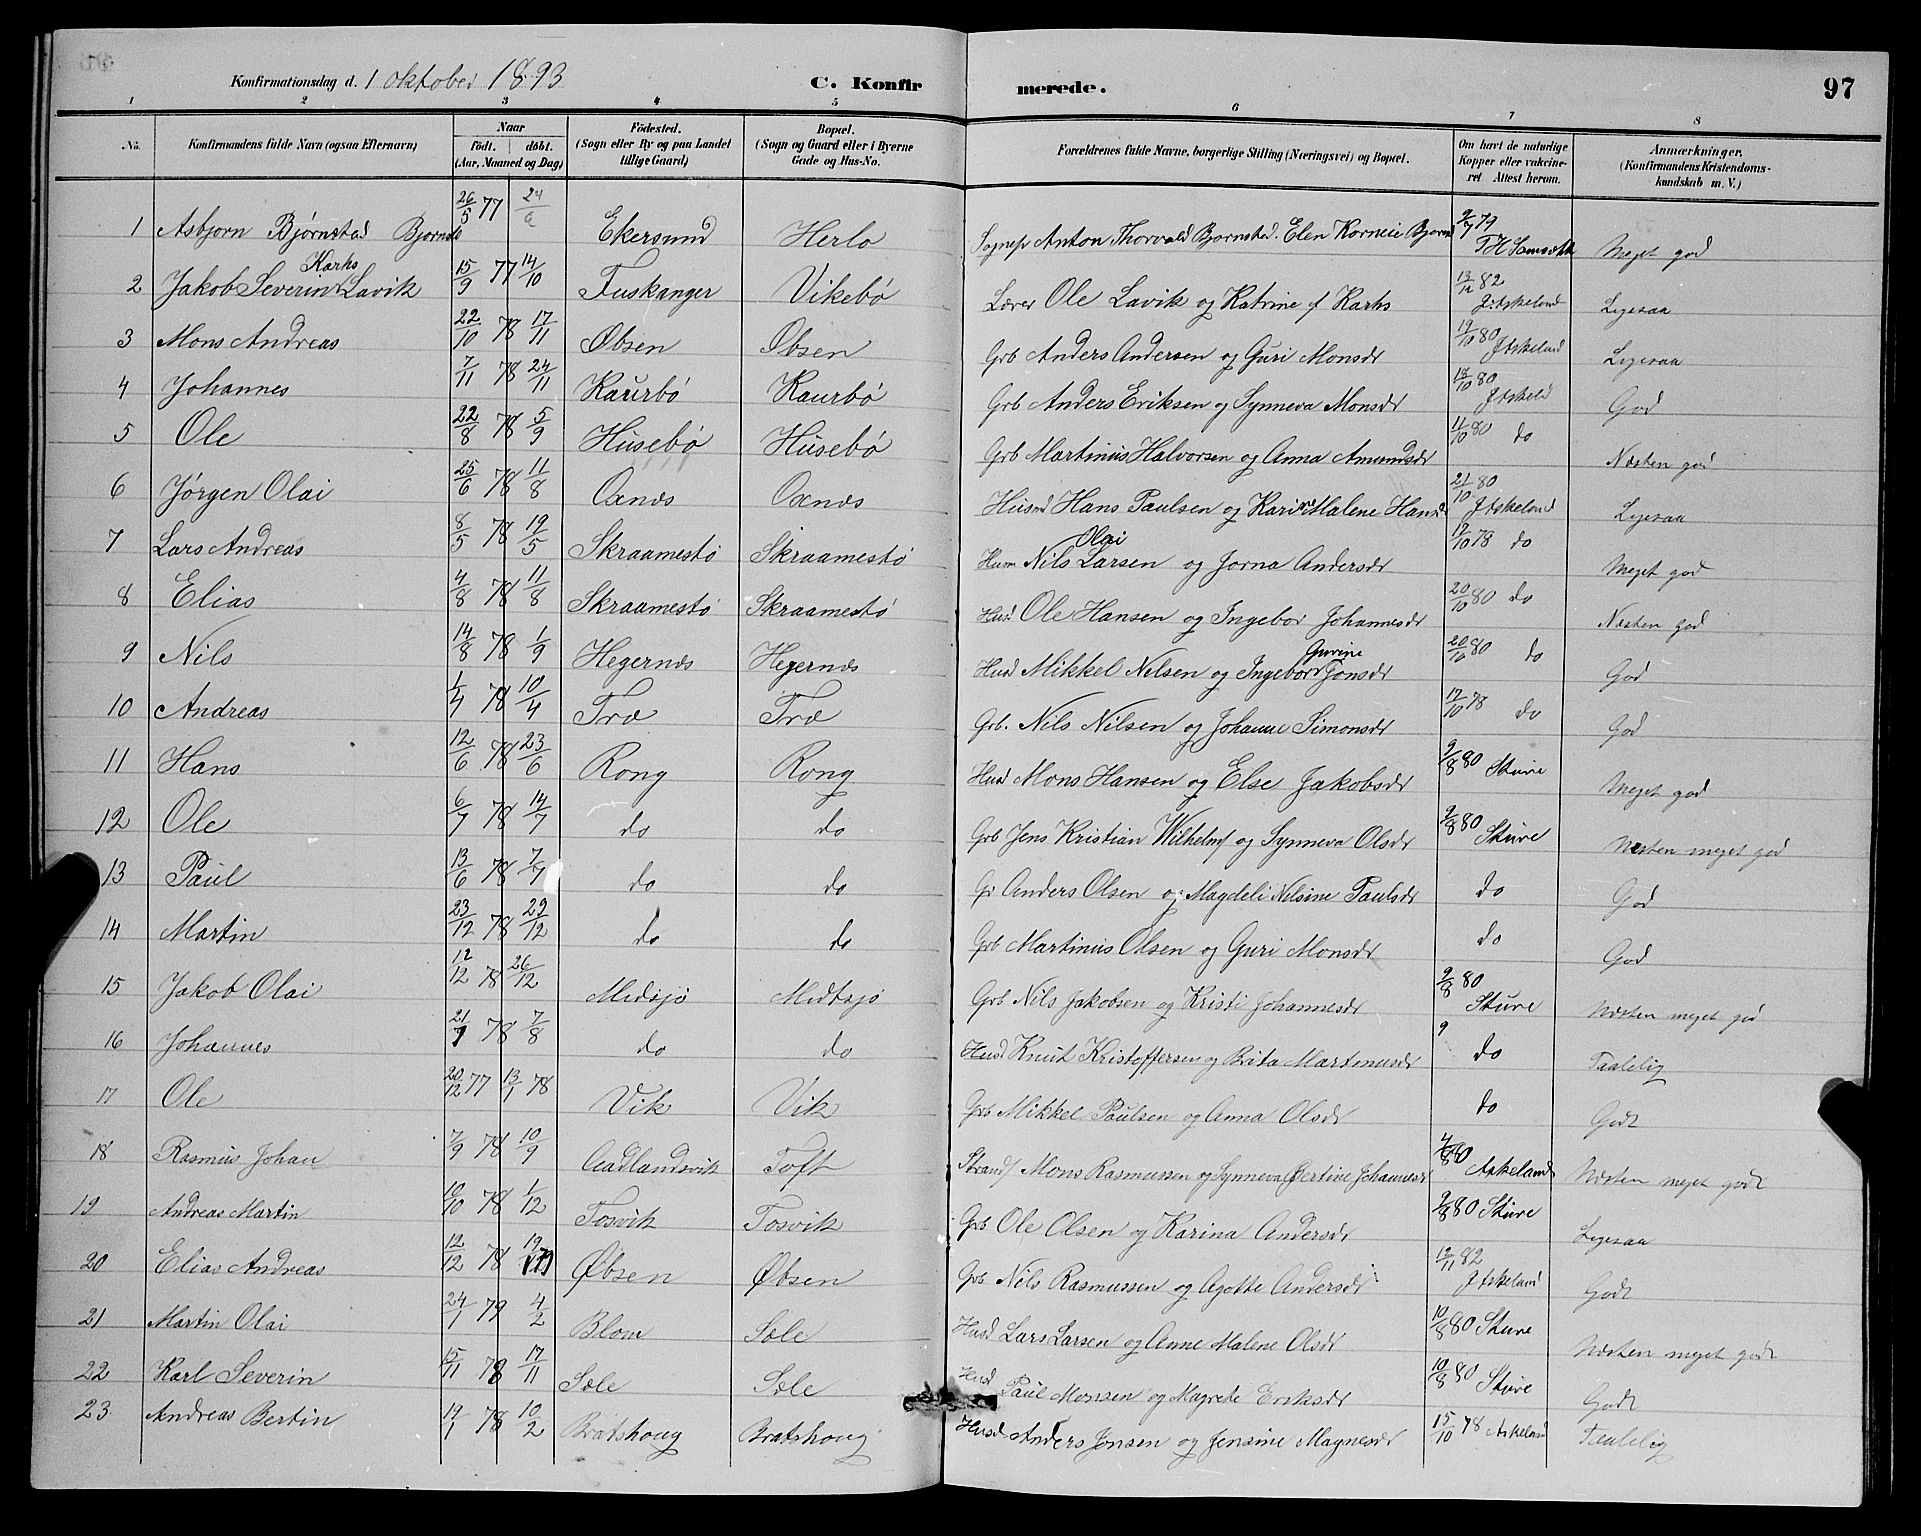 Konfirmationsdag d. 1 oktober 1893 C. Konfirmerede. 97
1 2 3 4 5 6 7 8
No. Konfirmandens fulde Navn (ogsaa Efternavn) Naar født. døbt. (Aar, Maaned og Dag) Fødested. (Sogn eller By og paa Landet tillige Gaard) Bopæl. (Sogn og Gaard eller i Byerne Gade og Hus-No.) Forældrenes fulde Navne, borgerlige Stilling (Næringsvei) og Bopæl. Om havt de naturlige Kopper eller vakcineret Attest herom. Anmærkninger, (Konfirmandens Kristendomskundskab m. V.)
1 Asbjørn Bjørnstad 26/5 77 24/6 Ekersund Herlo Sognep Anton Thorvald Bjornsted. Elen 9/7 79 Meget god
2 Jakob Severin Karhs Lavik 15/9 77 14/10 Fuskanger Vikebø Lærer Ole Lavik og Katrine f Karhs 13/12 82 J Askeland Ligesaa
3 Mons Andreas 22/10 78 17/11 Øbsen Øbsen Grb Anders Andersen og Guri Monsdr 19/10 80 J Askeland Ligesaa
4 Johannes 7/11 78 24/11 Kaurbø Kaurbø Grb Anders Eriksen og Synneva Monsdr 18/10 80 J Askeld God
5 Ole 22/8 78 5/9 Husebø Husebø Grb Martinus Halvorsen og Anna Amundsdr 11/10 80 do Næsten god
6 Jørgen Olai 25/6 78 11/8 Oanæs Oanæs Husmd Hans Paulsen og Kari Malene Hansd 21/10 80 J Askeland Ligesaa
7 Lars Andreas 8/5 78 19/5 Skraamestø Skraamestø Husm Nils Olai Larsen og Jorna Andersdr 12/10 78 do Meget god
8 Elias 4/8 78 11/8 Skraamestø Skraamestø Husd Ole Hansen og Ingebor Johannesdr 20/10 80 do Næsten god
9 Nils 14/8 78 1/9 Hegernæs Hegernæs Husd Mikkel Nilsen og Ingebor Gurine Jonsdr 20/10 80 do God
10 Andreas 1/4 78 10/4 Træ Træ Grb. Nils Nilsen og Johanne Simonsdr 17/10 78 do God
11 Hans 12/6 78 23/6 Rong Rong Husd Mons Hansen og Else Jakobsdr 9/8 80 Sture Meget god
12 Ole 6/7 78 14/7 do do Grb Jens Kristian Wilhelmf og Synneva Olsdr 9/8 80 Sture Næsten meget god
13 Paul 13/6 78 7/7 do do Gr Anders Olsen og Magdeli Nilsine Paulsdr do God
14 Martin 23/12 78 29/12 do do Grb Martinus Olsen og Guri Monsdr do God
15 Jakob Olai 12/12 78 26/12 Midsjø Midtsjø Grb Nils Jakobsen og Kristi Johannesdr 9/8 80 Sture Næsten meget god
16 Johannes 21/7 78 7/8 do do Husd Knut Kristoffersen og Brita Martinusdr 9 do Taalelig
17 Ole 20/12 77 13/1 78 Vik Vik Grb Mikkel Paulsen og Anna Olsdr do Godt
18 Rasmus Johan 7/9 78 10/9 Aadlandsvik Toft Strands Mons Rasmussen og Synneva Bertine Johannesdr 4/8 80 Askeland Næsten meget godt
19 Andreas Martin 10/10 78 1/12 Tosvik Tosvik Grb Ole Olsen og Karina Andersdr 9/8 80 Sture Ligesaa
20 Elias Andreas 12/12 78 19/1 79 Øbsen Øbsen Grb Nils Rasmussen og Agotte Andersdr 12/11 82 J Askeland Godt
21 Martin Olai 24/1 79 4/2 Blom Sæle Husd Lars Larsen og Anne Malene Olsdr 10/8 80 Sture Næsten meget godt
22 Karl Severin 15/11 78 17/11 Sæle Sæle Husd Paul Monsen og Magrete Eriksdr 10/8 80 Sture Godt
23 Andreas Bertin 19/1 78 10/2 Bratshoug Bratshoug Husd Anders Jonsen og Jensine Magnesdr 15/10 78 Askeland Taalelig